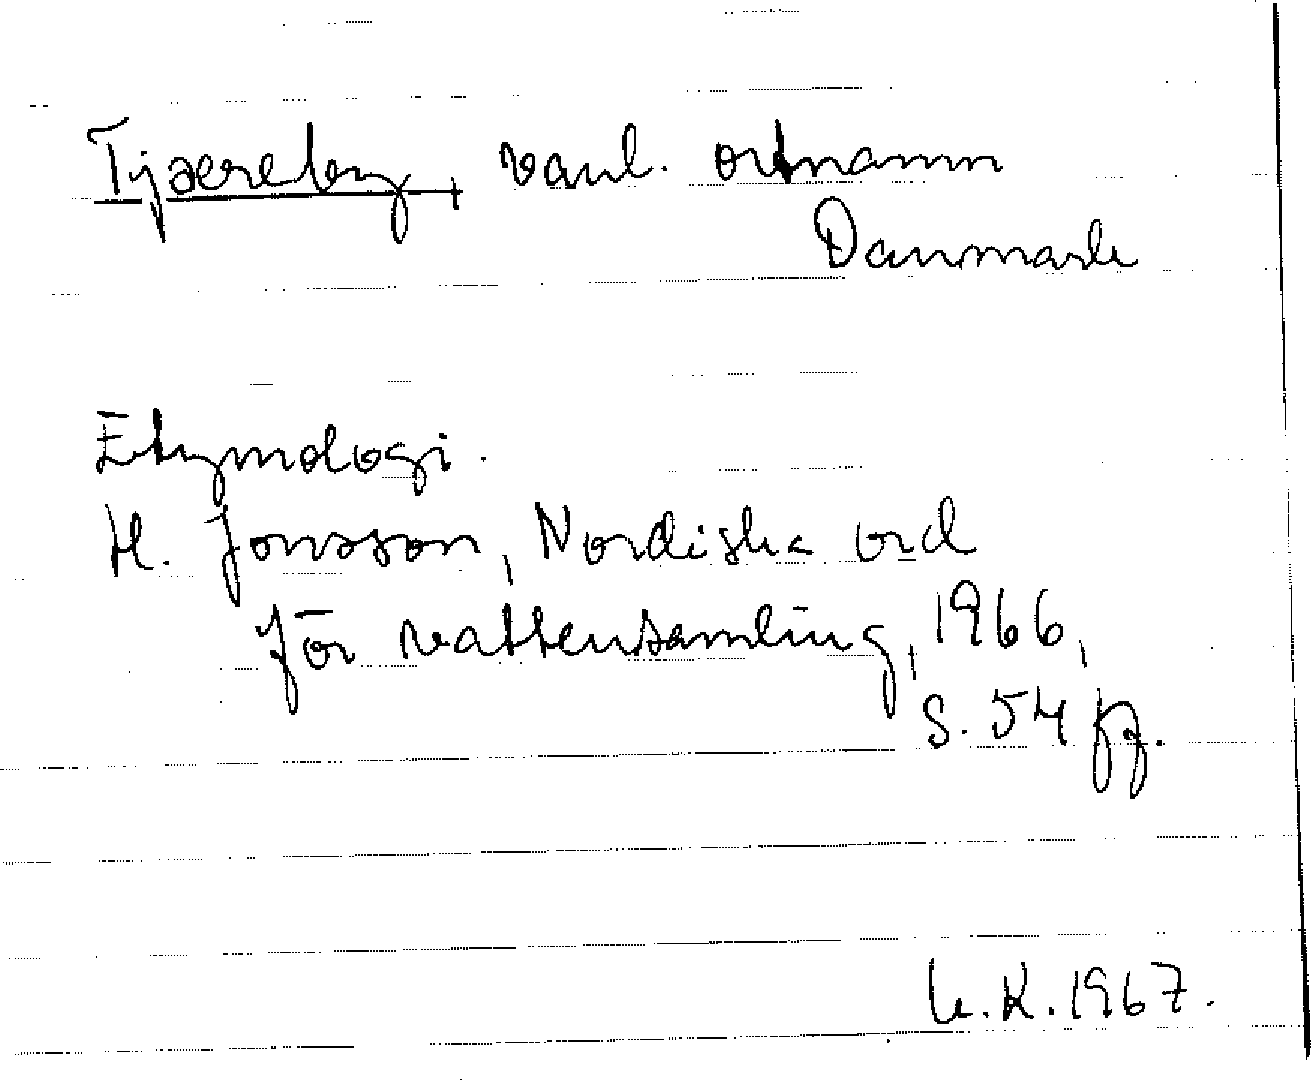 Tjaereby, vanl. ortnamn
Danmark
Etymologi.
H. Jonsson, Nordiska ord
för vattensamling, 1966,
S. 54 ff.
U.K. 1967.